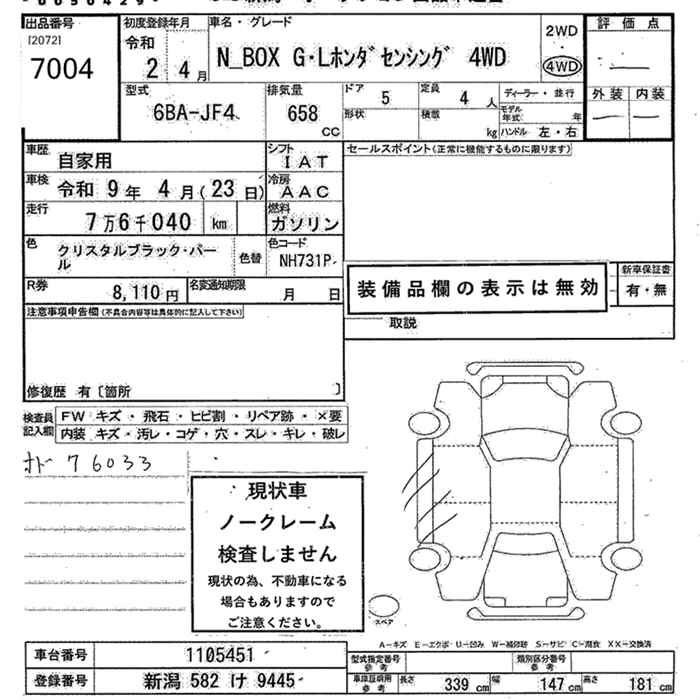 出品番号
[2072]
7004
初度登録年月
令和
2 4月
車名・グレード
N_BOX G・Lホンダセンシング 4WD
2WD
・
4WD
評価点
外装 内装
型式
6BA-JF4
排気量
658
CC
ドア
5
定員
4 人
形状
積載
kg
ディーラー・並行
モデル年式 年
ハンドル 左・右
車歴
自家用
シフト
IAT
セールスポイント(正常に機能するものに限ります)
車検
令和 9年 4月(23日)
冷房
AAC
走行
7万6千040 km
燃料
ガソリン
色
クリスタルブラック・パール
色替
色コード
NH731P
R券
8,110円
名変通知期限
月 日
装備品欄の表示は無効
新車保証書
有・無
取説
注意事項申告欄(不具合内容等は具体的に記入して下さい)
修復歴 有〔箇所 〕
検査員記入欄
FW キズ・飛石・ヒビ割・リペア跡・×要
内装 キズ・汚レ・コゲ・穴・スレ・キレ・破レ
オド 76033
現状車
ノークレーム
検査しません
現状の為、不動車になる
場合もありますので
ご注意ください。
スペア
A-キズ E-エクボ・U-凹み W-補修跡 S-サビ C-腐食 XX-交換済
車台番号
1105451
登録番号
新潟 582 け 9445
型式指定番号
参考
類別区分番号
参考
車庫証明用
参考
長さ 339 cm
幅 147 cm
高さ 181 cm